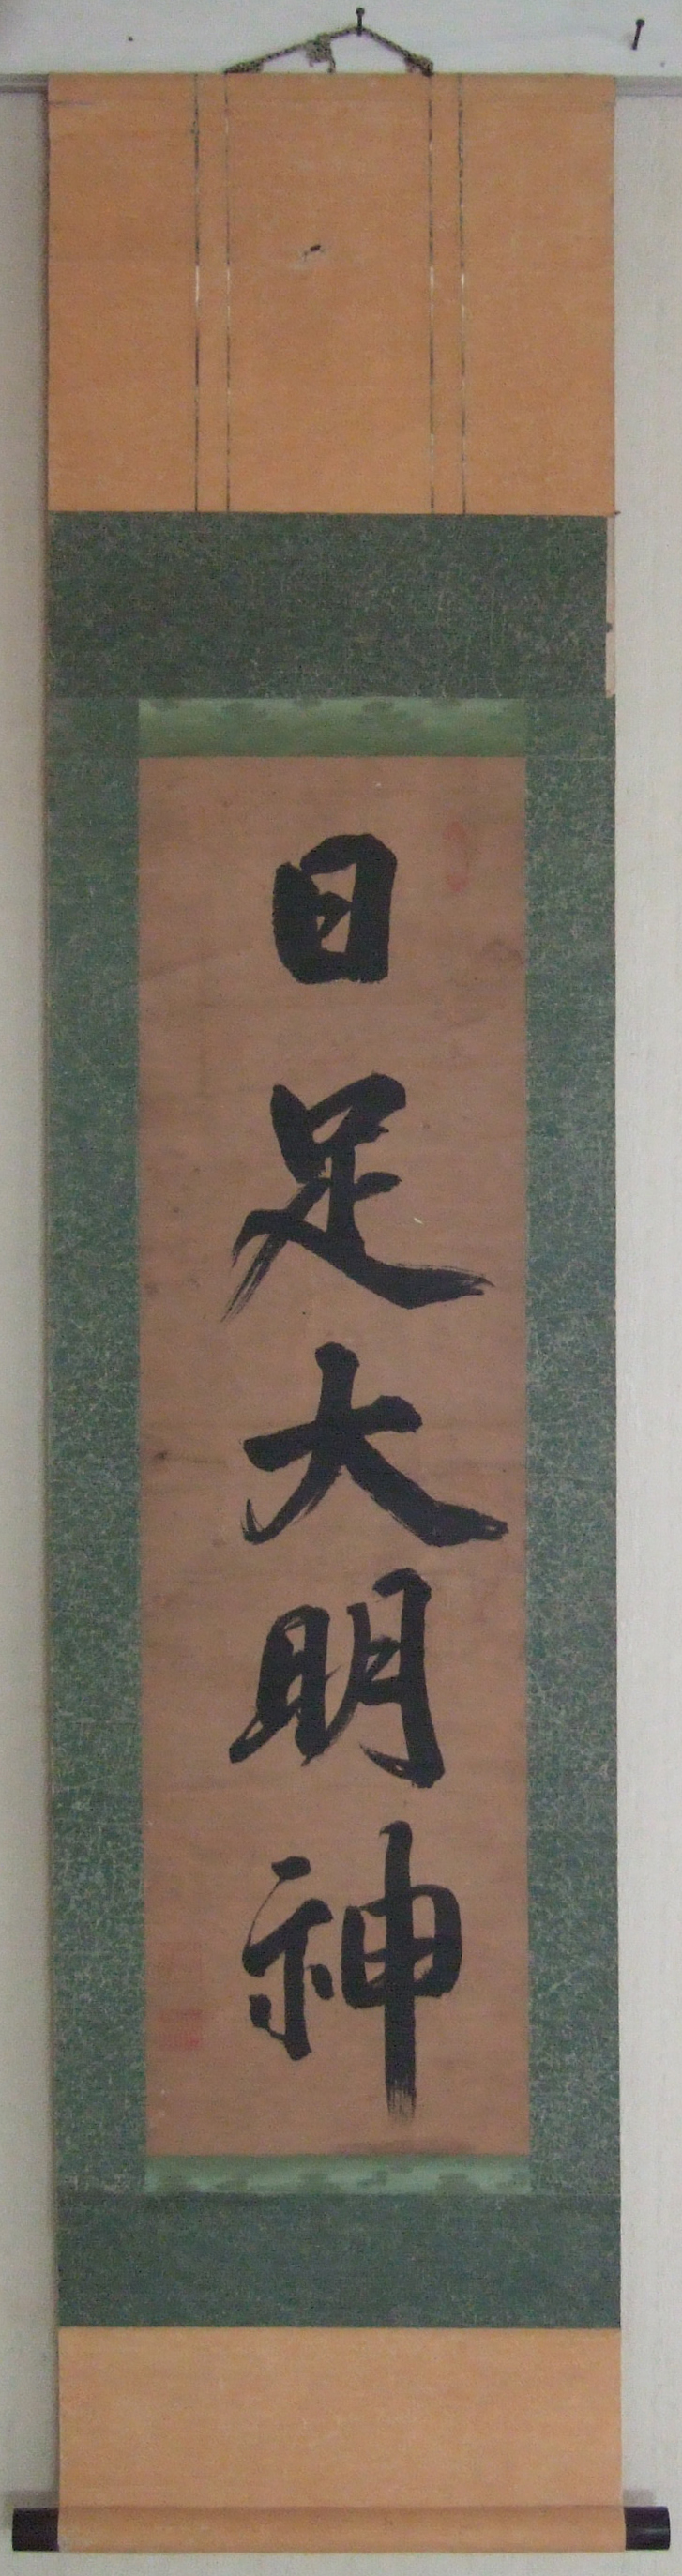 日足大明神